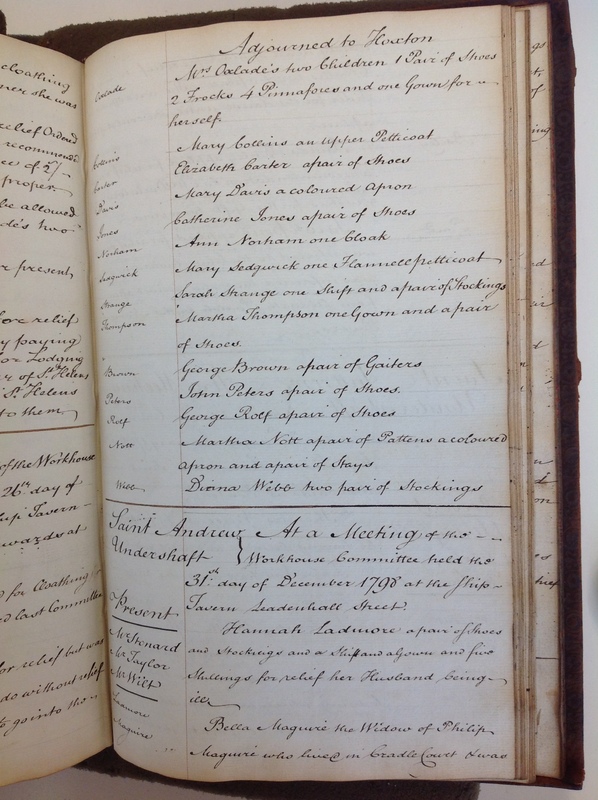 cloathing
ner she was
relief Ordered
recommended
ee of 2/
proper
be allowed
de's two
r present
for relief
y paying
or Lodging
r of St Helens
St Helens
to them
of the Workhouse
26th day of
hip Tavern
wards at
d for Cloathing
d last Committee
for relief but was
do without relief
to go into the
Adjourned to Hoxton
Oxlade Mrs Oxlade's two Children 1 Pair of Shoes
2 Frocks 4 Pinnafores and one Gown for
herself.
Collins Mary Collins an upper Petticoat
Carter Elizabeth Carter a pair of Shoes
Davis Mary Davis a coloured Apron
Jones Catherine Jones a pair of Shoes
Norham Ann Norham one Cloak
Sedgwick Mary Sedgwick one Flannell petticoat
Strange Sarah Strange one Shift and a pair of Stockings
Thompson Martha Thompson one Gown and a pair
of Shoes.
Brown George Brown a pair of Gaiters
Peters John Peters a pair of Shoes.
Rolf George Rolf a pair of Shoes
Nott Martha Nott a pair of Pattens a coloured
Apron and a pair of Stays
Webb Diana Webb two pair of Stockings
Saint Andrew Undershaft } At a Meeting of the
Workhouse Committee held the
31st day of December 1798 at the Ship
Tavern Leadenhall Street.
Present
Mr Stonard
Mr Taylor
Mr Wilt
Ladmore Hannah Ladmore a pair of Shoes
and Stockings and a Shift and a Gown and five
Shillings for relief her Husband being
ill
Maguire Bella Maguire the Widow of Philip
Maguire who lived in Cradle Court & was